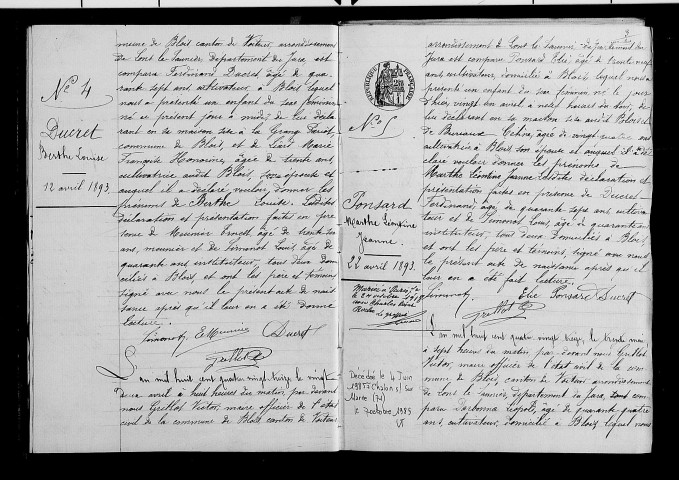 mune de Blois canton de Voiteur, arrondissement
de Lons le Saunier, département du Jura, est
comparu Ferdinand Ducret, âgé de qua-
rante sept ans, cultivateur, à Blois lequel
nous a présenté un enfant du sexe féminin
né ce présent jour à midi de lui décla-
rant en sa maison sise à la Grange
commune de Blois, et de Marie
Françoise Honorine, âgée de trente ans,
cultivatrice audit Blois, son épouse et
auquel il a déclaré vouloir donner les
prénoms de Berthe Louise. Lesdites
déclaration et présentation faites en pré-
sence de Meunier Ernest âgé de trente six
ans, meunier et de Simonot Louis, âgé de
quarante ans instituteur, tous deux domi-
ciliés à Blois, et ont les père et témoins
signé avec nous le présent acte de nais-
sance après qu'il leur en a été donné
lecture.
Simonot E Meunier Ducret
Grillot
L'an mil huit cent quatre vingt-treize, le vingt
deux avril à huit heures du matin, par devant
nous Grillot Victor, maire officier de l'état
civil de la commune de Blois canton de Voiteur
No 4
Ducret
Berthe Louise
12 avril 1893.
2
arrondissement de Lons le Saunier département du
Jura est comparu Ponsard Elie, âgé de trente neuf
ans, cultivateur, domicilié à Blois, lequel nous a
présenté un enfant du sexe féminin né le jour
d'hier, vingt un avril à neuf heures du soir, de
lui déclarant en sa maison sise audit Blois et
de, âgée de vingt quatre ans
cultivatrice à Blois son épouse et auquel il a dé-
claré vouloir donner les prénoms de
Marthe Léontine Jeanne. Lesdites déclaration et
présentation faites en présence de Ducret
Ferdinand, âgé de quarante sept ans, cultiva-
teur et de Simonot Louis, âgé de quarante ans
instituteur, tous deux domiciliés à Blois,
et ont les père et témoins, signé avec nous
le présent acte de naissance après qu'il
leur en a été fait lecture.
Simonot Elie Ponsard Ducret
Grillot
L'an mil huit cent quatre vingt treize, le trente mai
à sept heures du matin par devant nous Grillot
Victor, maire officier de l'état civil de la com-
mune de Blois, canton de Voiteur, arrondissement
de Lons le Saunier, département du Jura, est com-
paru Darbonna Léopold, âgé de quarante quatre
ans, cultivateur, domicilié à Blois, lequel nous
RÉPUBLIQUE FRANÇAISE
No 5
Ponsard
Marthe Léontine
Jeanne.
22 avril 1893.
Mariée à
le 2 octobre
avec
Décédée le 4 Juin
1985 à Châlons sur
Marne
le 7 octobre 1985